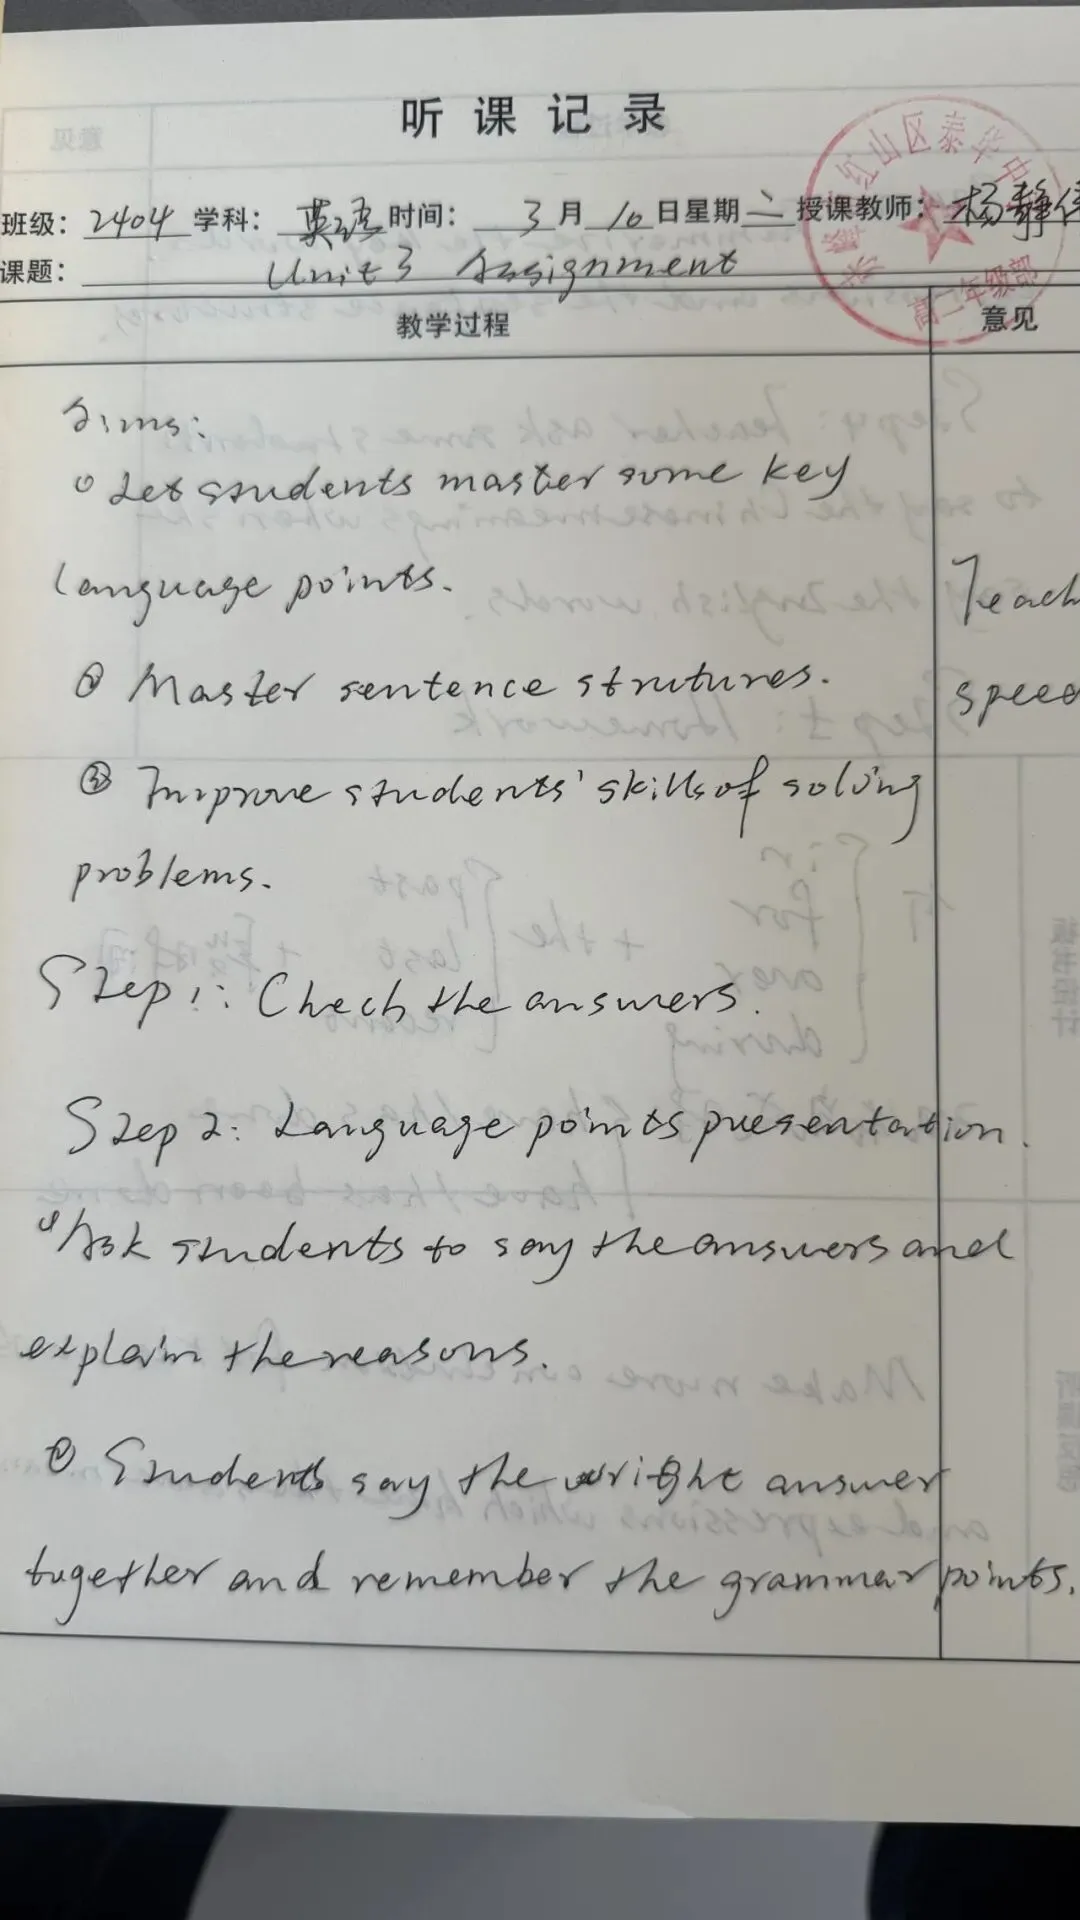 听课记录
班级: 2404 学科: 英语 时间: 3月10日星期二 授课教师: 杨静
课题: Unit 3 Assignment
教学过程 意见
红山区泰华中
高二年级部
Aims:
① Let students master some key
language points.
② Master sentence strutures.
③ Improve students' skills of solving
problems.
Step 1: Chech the answers.
Step 2: Language points presentation.
① Ask students to say the answers and
explain the reasons.
② Students say the wright answer
together and remember the grammar points.
Teach
speed